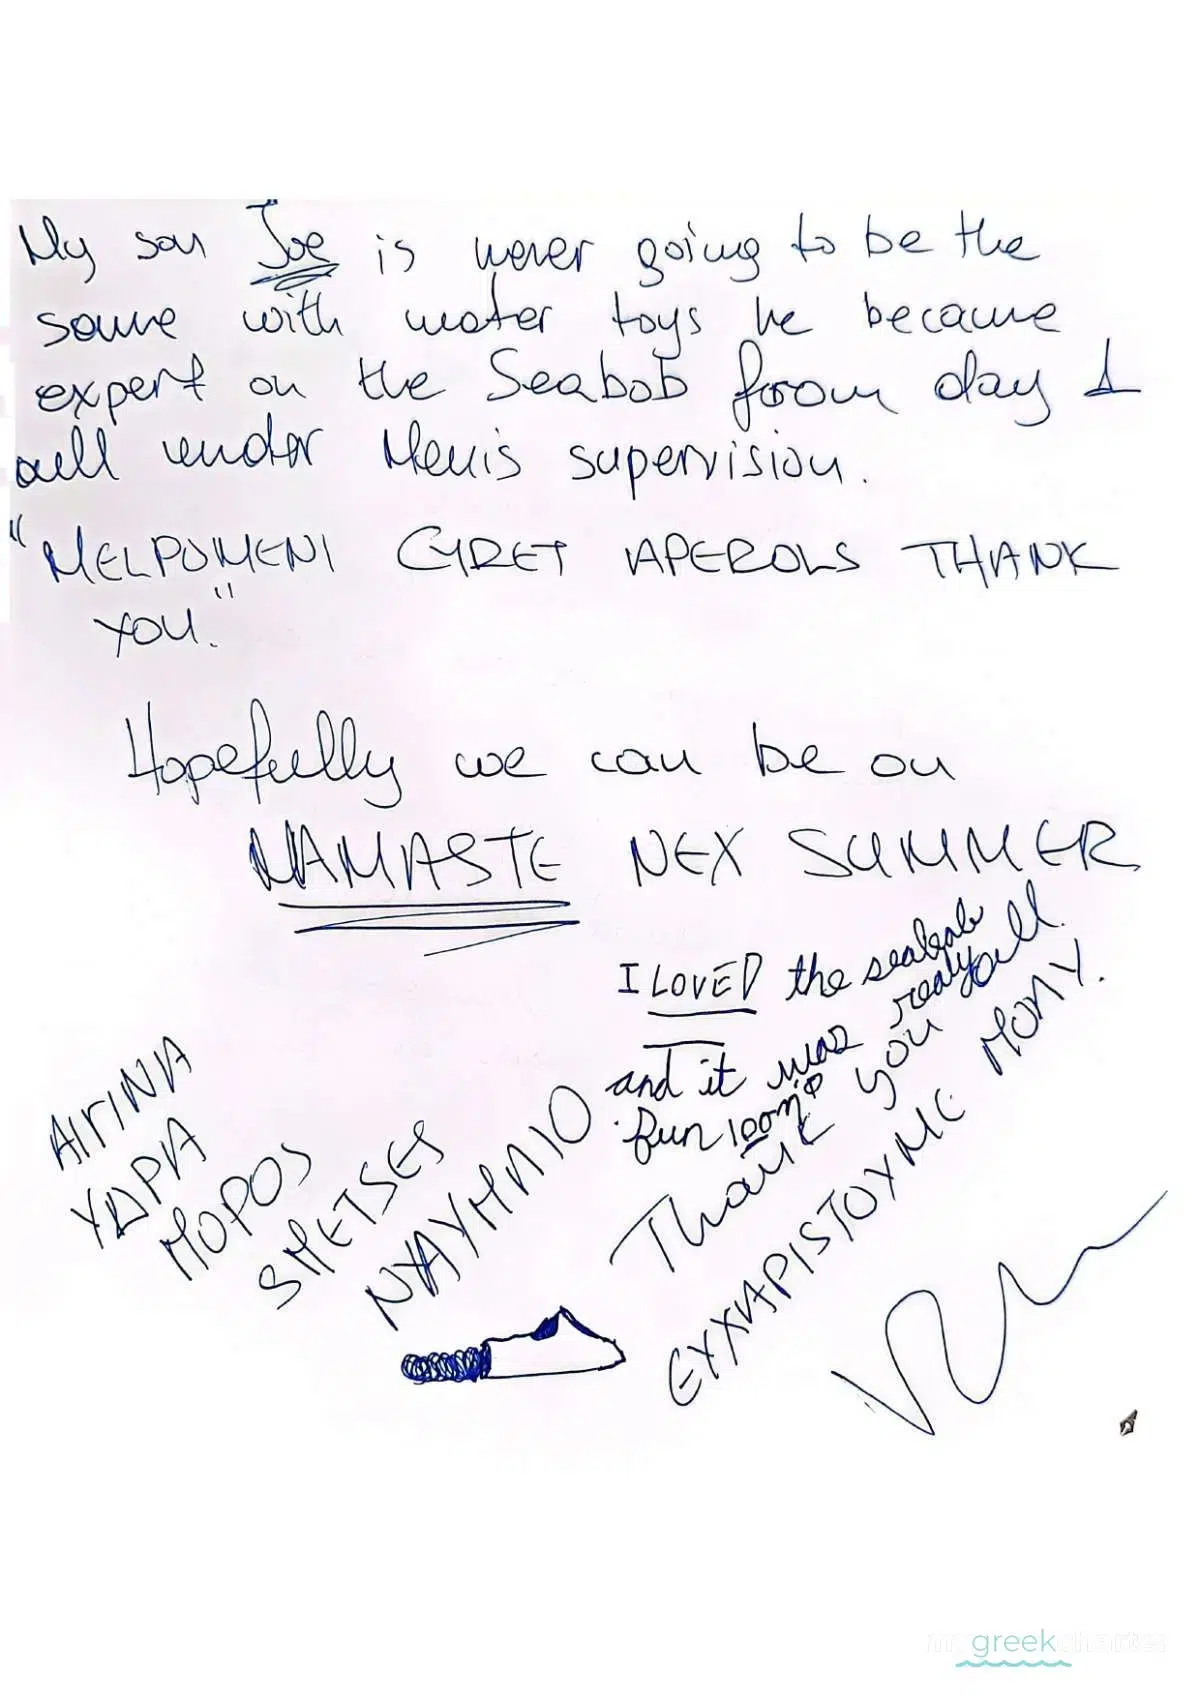 My son Joe is never going to be the
same with water toys he became
expert on the Seabob from day 1
all under Menis supervision.
"MELPOMENI GYRET APEROLS THANK
YOU."
Hopefully we can be on
NAMASTE NEX SUMMER
I LOVED the seabob
and it was really
fun 100%
Thank you all.
ΕΥΧΑΡΙSΤΟΥΜΕ ΠΟΛΥ.
ΑΙΓΙΝΑ
ΥΔΡΑ
ΠΟΡΟS
SΠΕΤSΕS
ΝΑΥΠΛΙΟ
greek